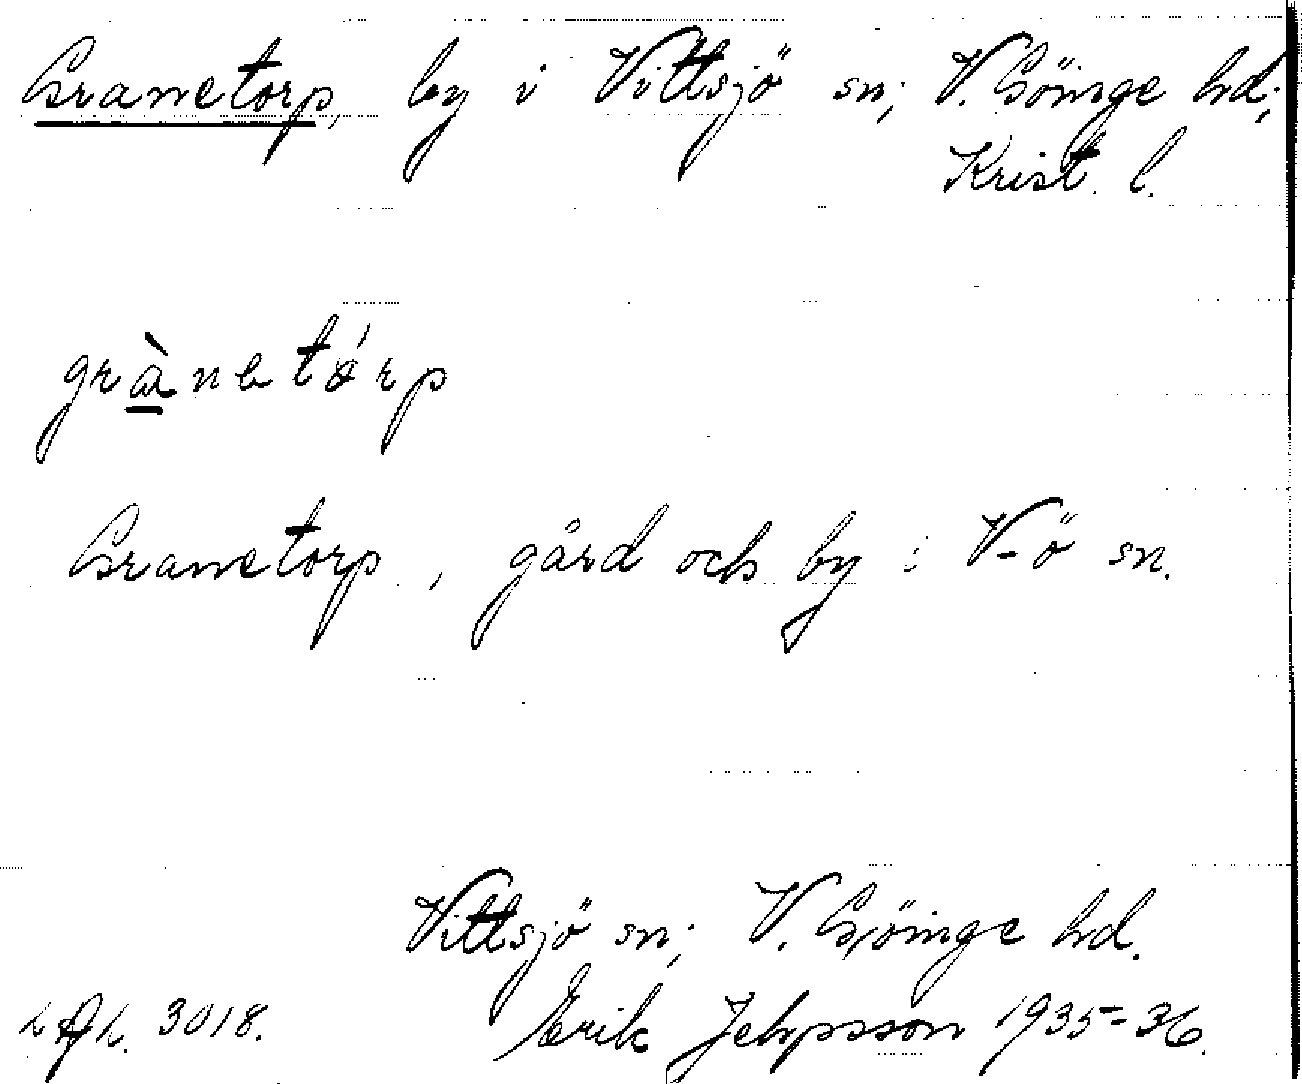 Granetorp, by i Vittsjö sn; V. Göinge hd;
Krist. l.
grànetórp
Granetorp, gård och by i V-ö sn.
Vittsjö sn; V. Göinge hd.
3018. Erik Jeppsson 1935-36.